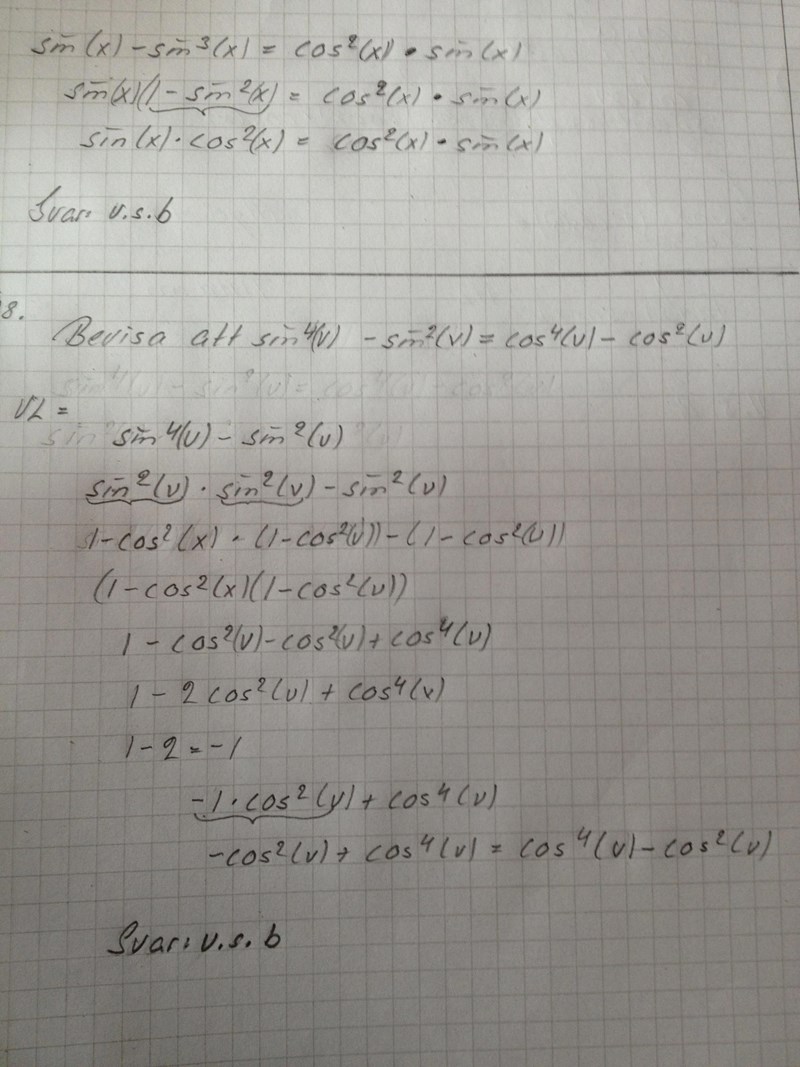 sin(x) - sin³(x) = cos²(x) • sin(x)
sin(x)(1 - sin²(x) = cos²(x) • sin(x)
sin(x) · cos²(x) = cos²(x) • sin(x)
Svar: v.s.b
8.
Bevisa att sin⁴(v) - sin²(v) = cos⁴(v) - cos²(v)
VL =
sin⁴(v) - sin²(v)
sin²(v) · sin²(v) - sin²(v)
1-cos²(x) · (1-cos²(v)) - (1-cos²(v))
(1-cos²(x)(1-cos²(v))
1 - cos²(v) - cos²(v) + cos⁴(v)
1 - 2cos²(v) + cos⁴(v)
1-2 = -1
-1 · cos²(v) + cos⁴(v)
-cos²(v) + cos⁴(v) = cos⁴(v) - cos²(v)
Svar: v.s.b